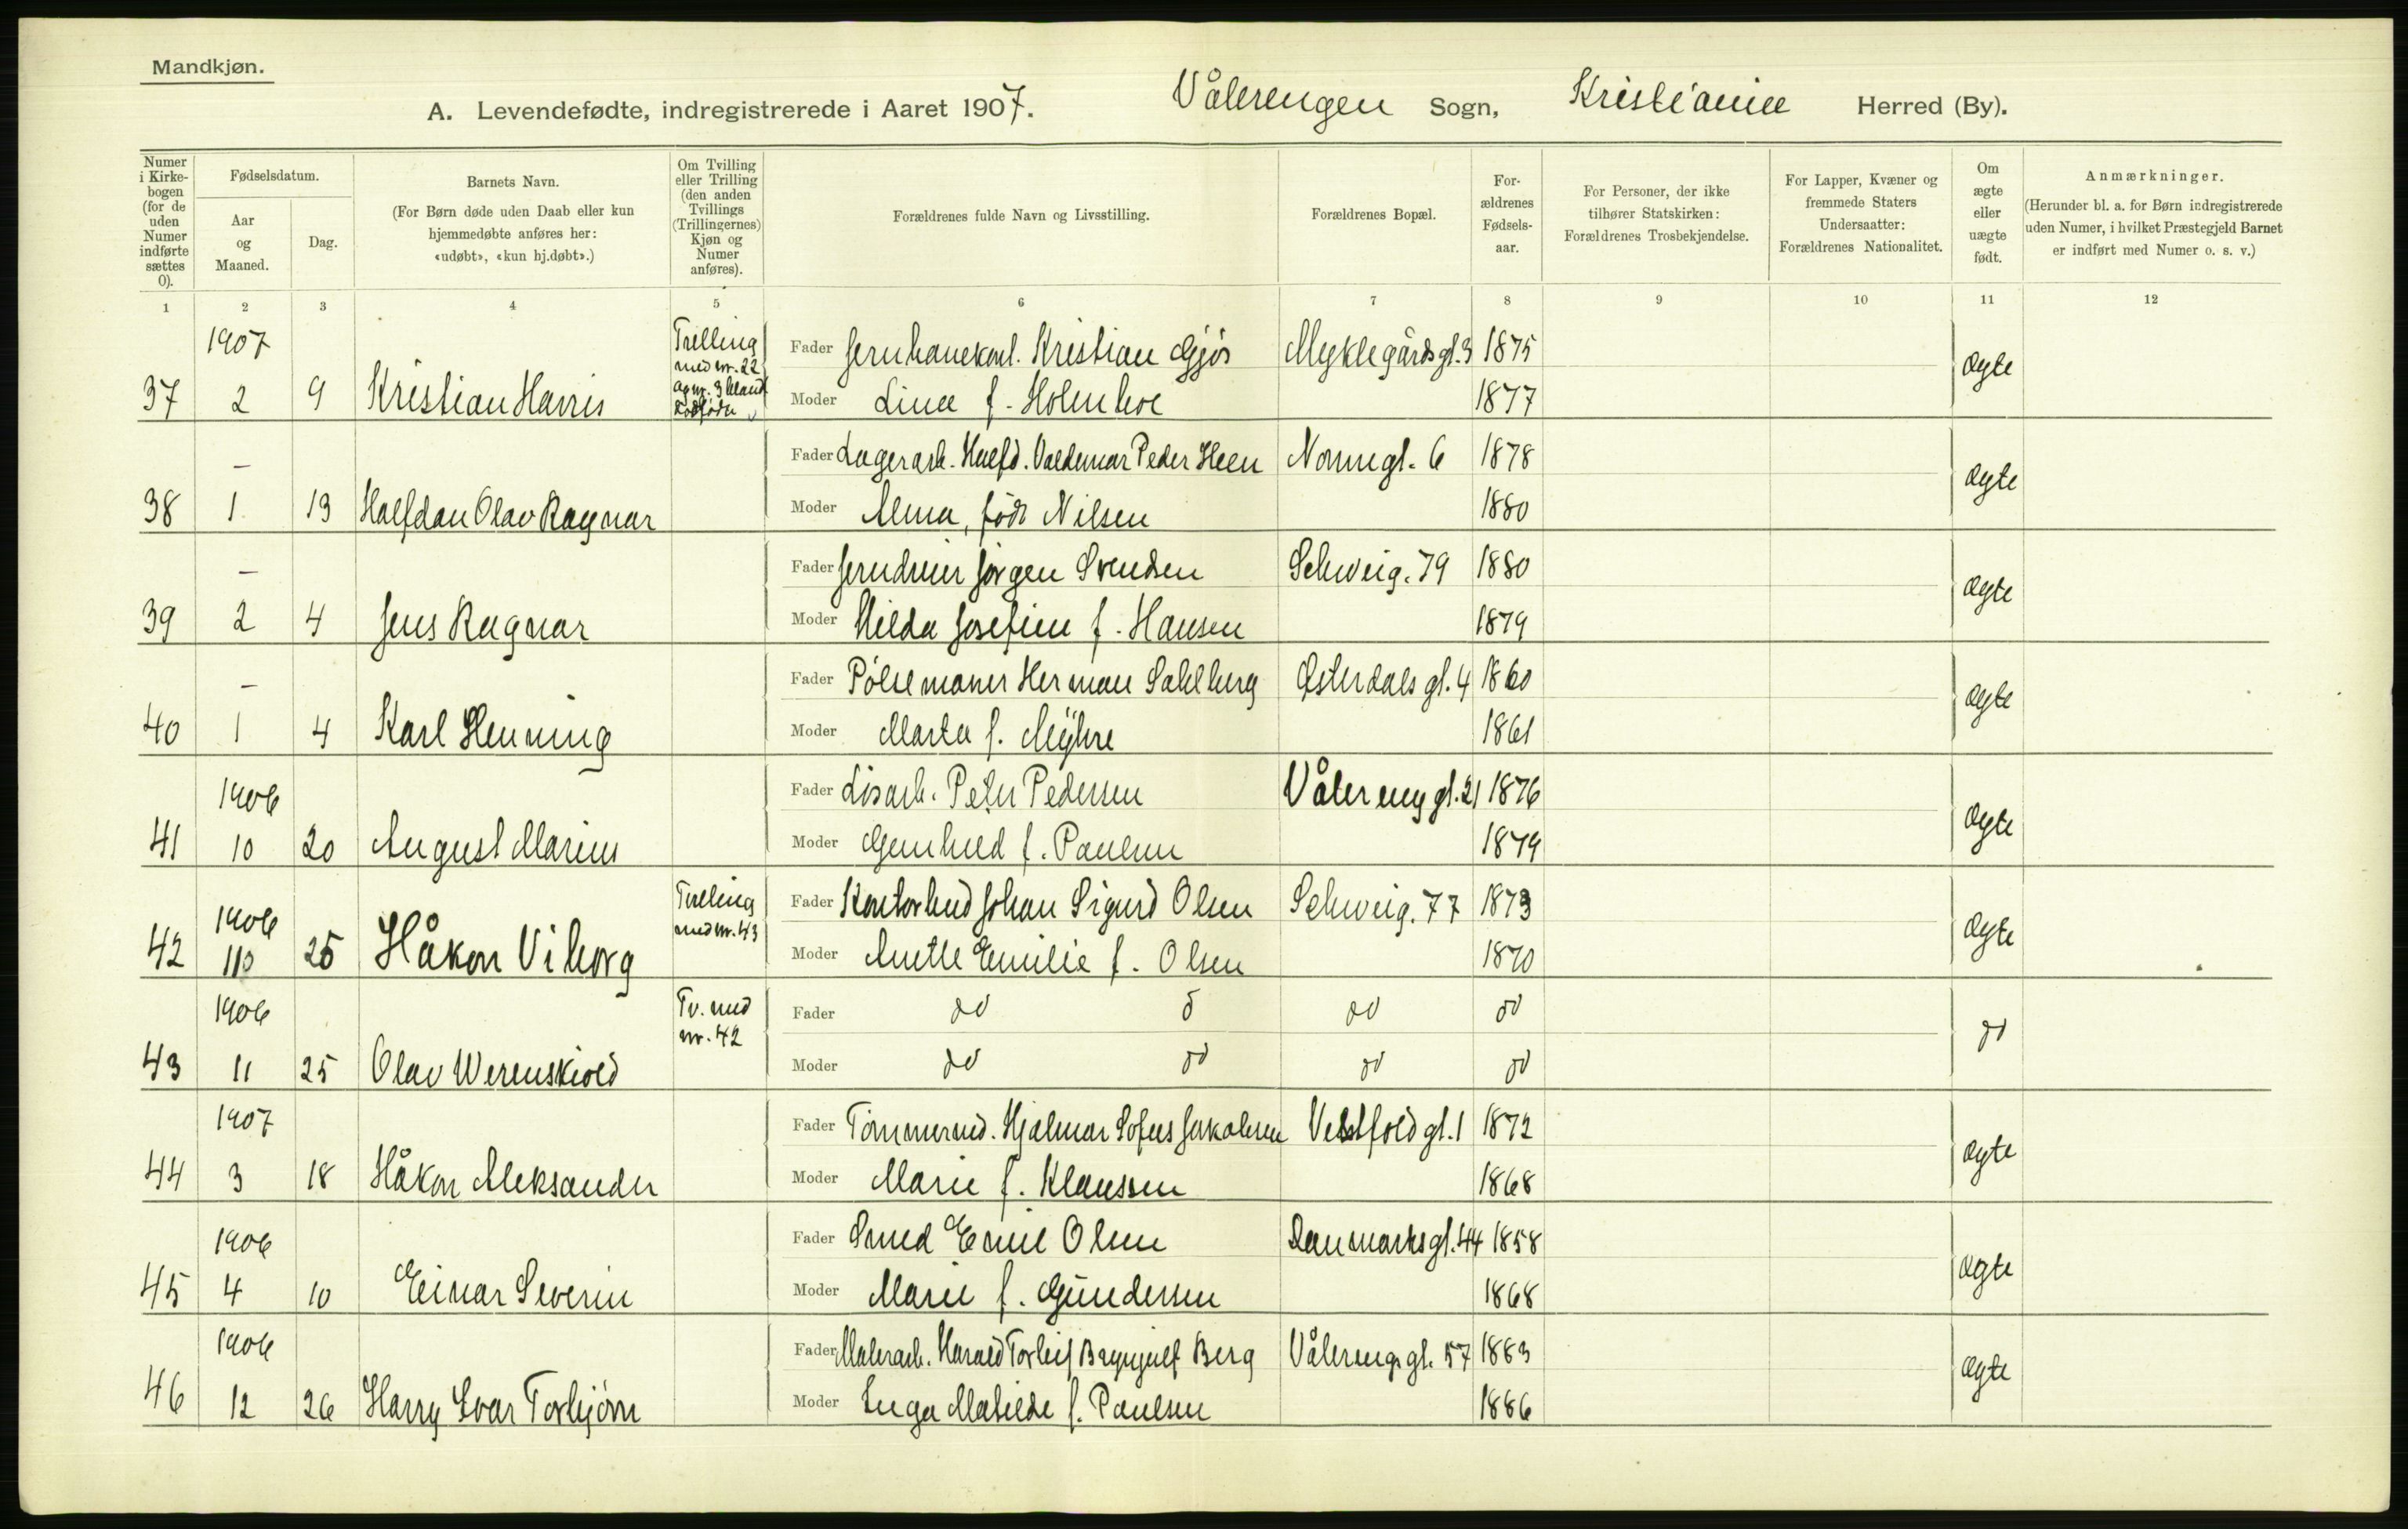 Mandkjøn.
A. Levendefødte, indregistrerede i Aaret 1907. Vålerengen Sogn, Kristiania Herred (By).
Numer i Kirkebogen (for de uden Numer indførte sættes 0).
Fødselsdatum.
Aar og Maaned.
Dag.
Barnets Navn.
(For Børn døde uden Daab eller kun hjemmedøbte anføres her: «udøbt», «kun hj.døbt».)
Om Tvilling eller Trilling (den anden Tvillings (Trillingernes) Kjøn og Numer anføres).
Forældrenes fulde Navn og Livsstilling.
Forældrenes Bopæl.
Forældrenes Fødselsaar.
For Personer, der ikke tilhører Statskirken: Forældrenes Trosbekjendelse.
For Lapper, Kvæner og fremmede Staters Undersaatter: Forældrenes Nationalitet.
Om ægte eller uægte født.
Anmærkninger.
(Herunder bl. a. for Børn indregistrerede uden Numer, i hvilket Præstegjeld Barnet er indført med Numer o. s. v.)
1 2 3 4 5 6 7 8 9 10 11 12
1907 Trilling med nr. 22 Fader Kristian Gjøs Myklegårdsgt. 3 1875 ægte
37 2 9 Kristian Harris Moder Lina f. Holmboe 1877
— Fader Lagerarb. Halfd. Valdemar Peder Heen Nonnegt. 6 1878 ægte
38 1 13 Halfdan Olav Ragnar Moder Alma, født Nilsen 1880
— Fader Jerndreier Jørgen Svendsen Schweig. 79 1880 ægte
39 2 4 Jens Ragnar Moder Hilda Josefine f. Hansen 1879
— Fader Pølsemaker Herman Sahlberg Østerdalsgt. 4 1860 ægte
40 1 4 Karl Henning Moder Marta f. Myhre 1861
1906 Fader Løsarb. Peter Pedersen Vålereng gt. 21 1876 ægte
41 10 20 August Marius Moder Gunhild f. Paulsen 1879
1906 Tvilling med nr. 43 Fader Kontorbud Johan Sigurd Olsen Schweig. 77 1873 ægte
42 11 25 Håkon Viborg Moder Anette Emilie f. Olsen 1870
1906 Tv. med nr. 42 Fader do do do do do
43 11 25 Olav Werenskiold Moder do do do do
1907 Fader Tømmermd. Hjalmar Sofus Jakobsen Vestfoldgt. 1 1872 ægte
44 3 18 Håkon Aleksander Moder Marie f. Klaussen 1868
1906 Fader Smed Emil Olsen Danmarksgt. 44 1858 ægte
45 4 10 Einar Severin Moder Marie f. Gundersen 1868
1906 Fader Malerarb. Harald Torleif Brynjulf Berg Vålerengsgt. 57 1883 ægte
46 12 26 Harry Ivar Torbjørn Moder Inga Matilde f. Paulsen 1886